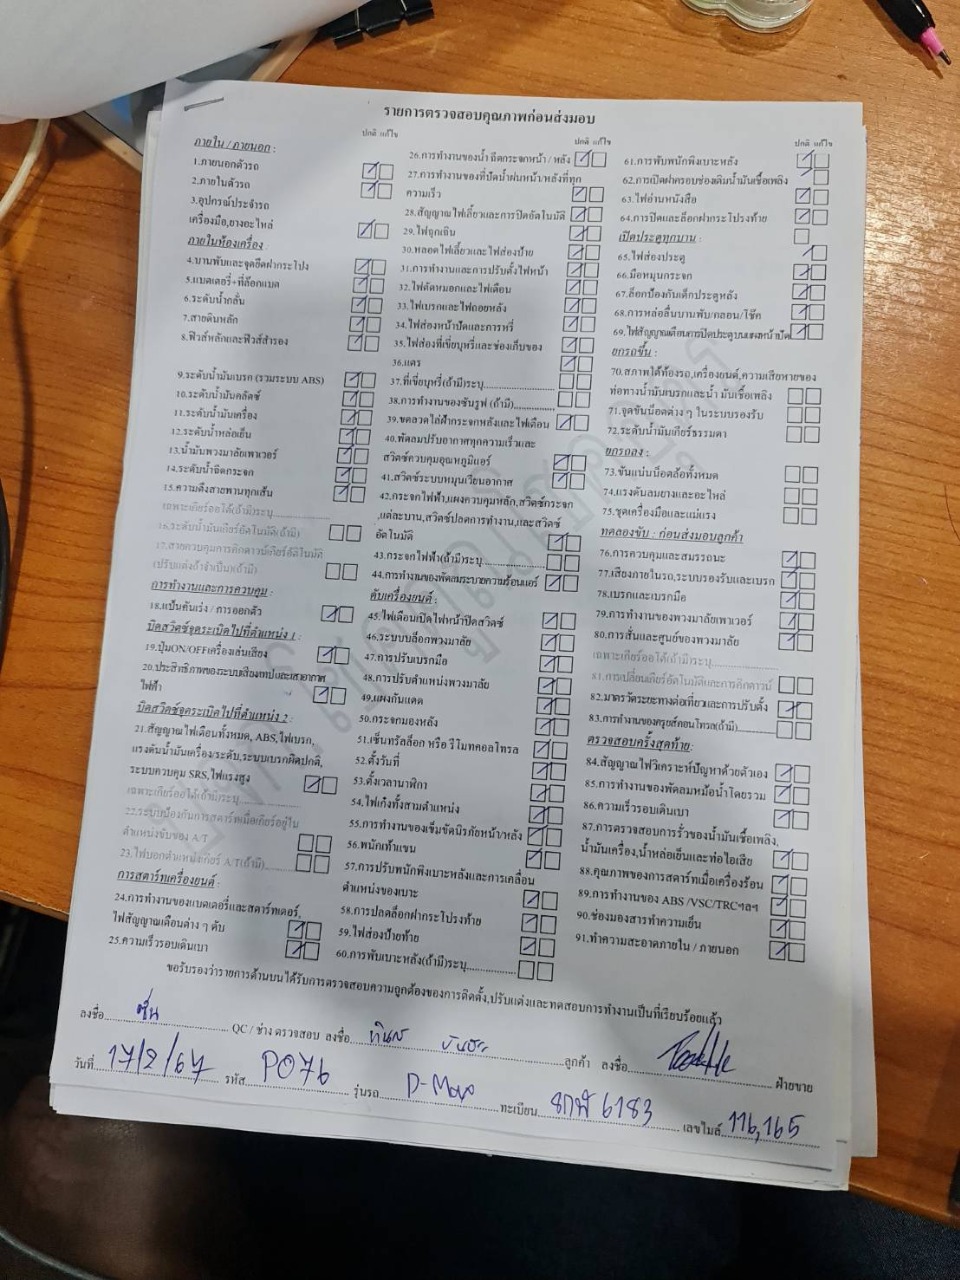 รายการตรวจสอบคุณภาพก่อนส่งมอบ
ปกติ แก้ไข
ภายใน / ภายนอก :
1.ภายนอกตัวรถ
2.ภายในตัวรถ
3.อุปกรณ์ประจำรถ
เครื่องมือ,ยางอะไหล่
ภายในห้องเครื่อง :
4.บานพับและจุดยึดฝากระโปง
5.แบตเตอรี่+ที่ล็อกแบต
6.ระดับน้ำกลั่น
7.สายดินหลัก
8.ฟิวส์หลักและฟิวส์สำรอง
9.ระดับน้ำมันเบรก (รวมระบบ ABS)
10.ระดับน้ำมันคลัตช์
11.ระดับน้ำมันเครื่อง
12.ระดับน้ำหล่อเย็น
13.น้ำมันพวงมาลัยเพาเวอร์
14.ระดับน้ำฉีดกระจก
15.ความตึงสายพานทุกเส้น
เฉพาะเกียร์ออโต้(ถ้ามี)ระบุ
16.ระดับน้ำมันเกียร์อัตโนมัติ(ถ้ามี)
17.สายควบคุมการคิกดาวน์เกียร์อัตโนมัติ
(ปรับแต่งถ้าจำเป็น)(ถ้ามี)
การทำงานและการควบคุม :
18.แป้นคันเร่ง / การออกตัว
บิดสวิตช์จุดระเบิดไปที่ตำแหน่ง 1 :
19.ปุ่มON/OFFเครื่องเล่นเสียง
20.ประสิทธิภาพของระบบเสียงเทปและเสาอากาศ
ไฟฟ้า
บิดสวิตช์จุดระเบิดไปที่ตำแหน่ง 2 :
21.สัญญาณไฟเตือนทั้งหมด, ABS,ไฟเบรก,
แรงดันน้ำมันเครื่อง/ระดับ,ระบบเบรกผิดปกติ,
ระบบควบคุม SRS,ไฟแรงสูง
เฉพาะเกียร์ออโต้(ถ้ามี)ระบุ
22.ระบบป้องกันการสตาร์ทเมื่อเกียร์อยู่ใน
ตำแหน่งขับของ A/T
23.ไฟบอกตำแหน่งเกียร์ A/T(ถ้ามี)
การสตาร์ทเครื่องยนต์ :
24.การทำงานของแบตเตอรี่และสตาร์ทเตอร์,
ไฟสัญญาณเตือนต่าง ๆ ดับ
25.ความเร็วรอบเดินเบา
ปกติ แก้ไข
26.การทำงานของน้ำ ฉีดกระจกหน้า / หลัง
27.การทำงานของที่ปัดน้ำฝนหน้า/หลังที่ทุก
ความเร็ว
28.สัญญาณไฟเลี้ยวและการปิดอัตโนมัติ
29.ไฟฉุกเฉิน
30.หลอดไฟเลี้ยวและไฟส่องป้าย
31.การทำงานและการปรับตั้งไฟหน้า
32.ไฟตัดหมอกและไฟเตือน
33.ไฟเบรกและไฟถอยหลัง
34.ไฟส่องหน้าปัดและการหรี่
35.ไฟส่องที่เขี่ยบุหรี่และช่องเก็บของ
36.แตร
37.ที่เขี่ยบุหรี่(ถ้ามี)ระบุ
38.การทำงานของซันรูฟ (ถ้ามี)
39.ขดลวดไล่ฝ้ากระจกหลังและไฟเตือน
40.พัดลมปรับอากาศทุกความเร็วและ
สวิตช์ควบคุมอุณหภูมิแอร์
41.สวิตช์ระบบหมุนเวียนอากาศ
42.กระจกไฟฟ้า,แผงควบคุมหลัก,สวิตช์กระจก
แต่ละบาน,สวิตช์ปลดการทำงาน,และสวิตช์
อัตโนมัติ
43.กระจกไฟฟ้า(ถ้ามี)ระบุ
44.การทำงานของพัดลมระบายความร้อนแอร์
ดับเครื่องยนต์ :
45.ไฟเตือนเปิดไฟหน้าปิดสวิตช์
46.ระบบบล็อกพวงมาลัย
47.การปรับเบรกมือ
48.การปรับตำแหน่งพวงมาลัย
49.แผงกันแดด
50.กระจกมองหลัง
51.เซ็นทรัลล็อก หรือ รีโมทคอลโทรล
52.ตั้งวันที่
53.ตั้งเวลานาฬิกา
54.ไฟเก๋งทั้งสามตำแหน่ง
55.การทำงานของเข็มขัดนิรภัยหน้า/หลัง
56.พนักเท้าแขน
57.การปรับพนักพิงเบาะหลังและการเคลื่อน
ตำแหน่งของเบาะ
58.การปลดล็อกฝากระโปรงท้าย
59.ไฟส่องป้ายท้าย
60.การพับเบาะหลัง(ถ้ามี)ระบุ
ปกติ แก้ไข
61.การพับพนักพิงเบาะหลัง
62.การเปิดฝาครอบช่องเติมน้ำมันเชื้อเพลิง
63.ไฟอ่านหนังสือ
64.การปิดและล็อกฝากระโปรงท้าย
เปิดประตูทุกบาน :
65.ไฟส่องประตู
66.มือหมุนกระจก
67.ล็อกป้องกันเด็กประตูหลัง
68.การหล่อลื่นบานพับ/กลอน/โช๊ค
69.ไฟสัญญาณเตือนการปิดประตูบนแผงหน้าปัด
ยกรถขึ้น :
70.สภาพใต้ท้องรถ,เครื่องยนต์,ความเสียหายของ
ท่อทางน้ำมันเบรกและน้ำ มันเชื้อเพลิง
71.จุดขันน็อตต่าง ๆ ในระบบรองรับ
72.ระดับน้ำมันเกียร์ธรรมดา
ยกรถลง :
73.ขันแน่นน็อตล้อทั้งหมด
74.แรงดันลมยางและอะไหล่
75.ชุดเครื่องมือและแม่แรง
ทดลองขับ : ก่อนส่งมอบลูกค้า
76.การควบคุมและสมรรถนะ
77.เสียงภายในรถ,ระบบรองรับและเบรก
78.เบรกและเบรกมือ
79.การทำงานของพวงมาลัยเพาเวอร์
80.การสั่นและศูนย์ของพวงมาลัย
เฉพาะเกียร์ออโต้(ถ้ามี)ระบุ
81.การเปลี่ยนเกียร์อัตโนมัติและการคิกดาวน์
82.มาตรวัดระยะทางต่อเที่ยวและการปรับตั้ง
83.การทำงานของครุยส์คอนโทรล(ถ้ามี)
ตรวจสอบครั้งสุดท้าย:
84.สัญญาณไฟวิเคราะห์ปัญหาด้วยตัวเอง
85.การทำงานของพัดลมหม้อน้ำโดยรวม
86.ความเร็วรอบเดินเบา
87.การตรวจสอบการรั่วของน้ำมันเชื้อเพลิง,
น้ำมันเครื่อง,น้ำหล่อเย็นและท่อไอเสีย
88.คุณภาพของการสตาร์ทเมื่อเครื่องร้อน
89.การทำงานของ ABS /VSC/TRCฯลฯ
90.ช่องมองสารทำความเย็น
91.ทำความสะอาดภายใน / ภายนอก
ขอรับรองว่ารายการด้านบนได้รับการตรวจสอบความถูกต้องของการติดตั้ง,ปรับแต่งและทดสอบการทำงานเป็นที่เรียบร้อยแล้ว
ลงชื่อ QC / ช่าง ตรวจสอบ ลงชื่อ ลูกค้า ลงชื่อ ฝ่ายขาย
วันที่ 17/2/67 รหัส P076 รุ่นรถ D-Max ทะเบียน 6183 เลขไมล์ 116,165